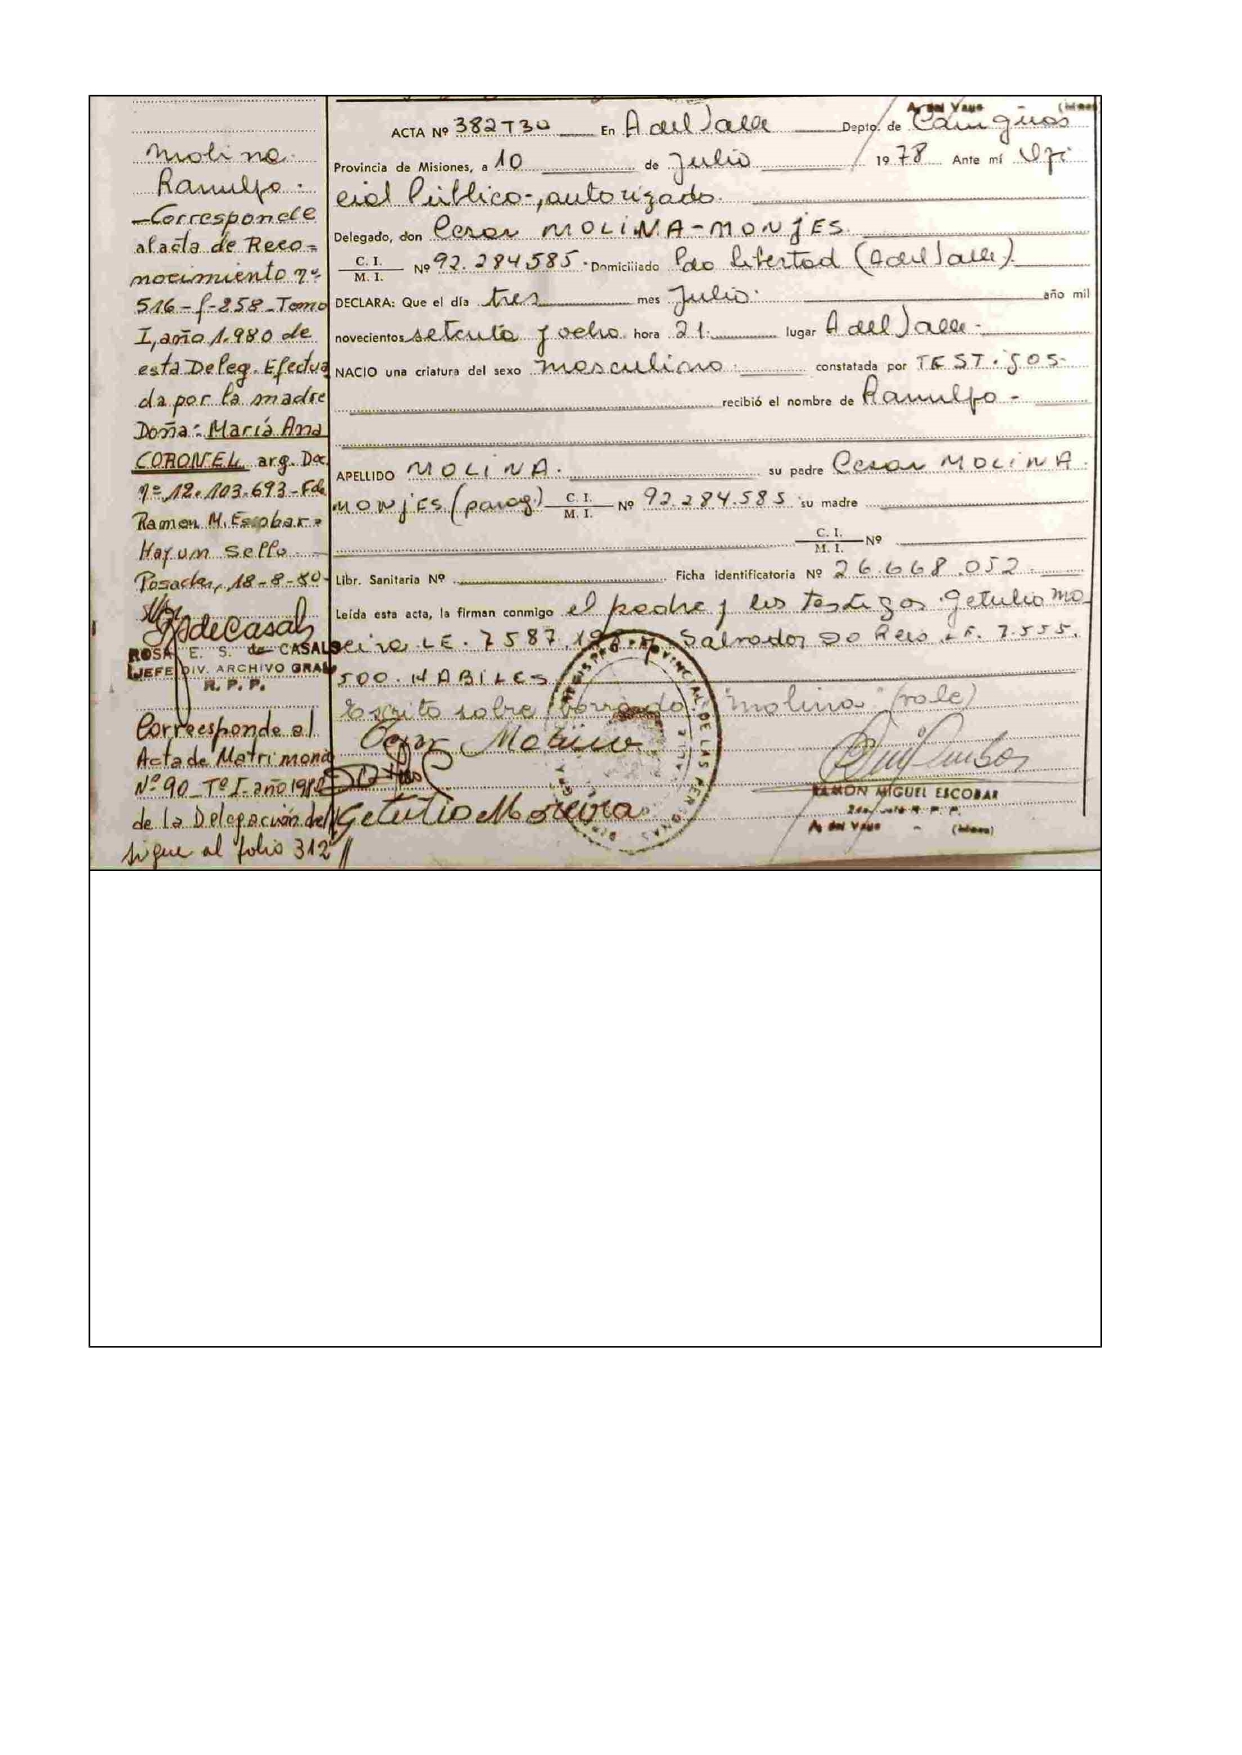 Molina
Ramulfo.
-Corresponde
al acta de Reco-
nocimiento nº
516-f-258-Tomo
I, año 1.980 de
esta Deleg. Efectua
da por la madre
Doña: María Ana
CORONEL arg. Doc.
nº 12.103.693-Fdo
Ramon M. Escobar-
Hay un sello.
Posadas, 18-8-80-
ROSA E. S. de CASALS
JEFE DIV. ARCHIVO GRAL
R. P. P.
Corresponde al
Acta de Matrimonio
Nº 90 Tº I año
de la Delegación del
Sigue al folio 312 //
A. del Valle - (Mnes)
ACTA Nº 382T30 En A del Valle Depto. de Cainguas
Provincia de Misiones, a 10 de Julio 1978 Ante mí Ofi
cial Público-, autorizado.
Delegado, don Cesar MOLINA-MONJES.
C. I.
M. I. Nº 92.284585. Domiciliado Pdo Libertad (A del Valle)
DECLARA: Que el día tres mes Julio. año mil
novecientos setenta y ocho hora 21. lugar A del Valle-
NACIO una criatura del sexo masculino. constatada por TESTIGOS-
recibió el nombre de Ramulfo-
APELLIDO MOLINA. su padre Cesar MOLINA.
MONJES (parag.) C. I.
M. I. Nº 92.284.585 su madre
C. I.
M. I. Nº
Libr. Sanitaria Nº Ficha identificatoria Nº 26.668.052.
Leída esta acta, la firman conmigo el padre y los testigos Getulio Mo
reira LE. 7587. Salvador Do Reis LE. 7.555.
500. HABILES
Escrito sobre borrado "Molina" (vale)
Cesar Molina
Getulio Moreira
REGISTRO PROVINCIAL DE LAS PERSONAS
RAMON MIGUEL ESCOBAR
A. del Valle - (Mnes)